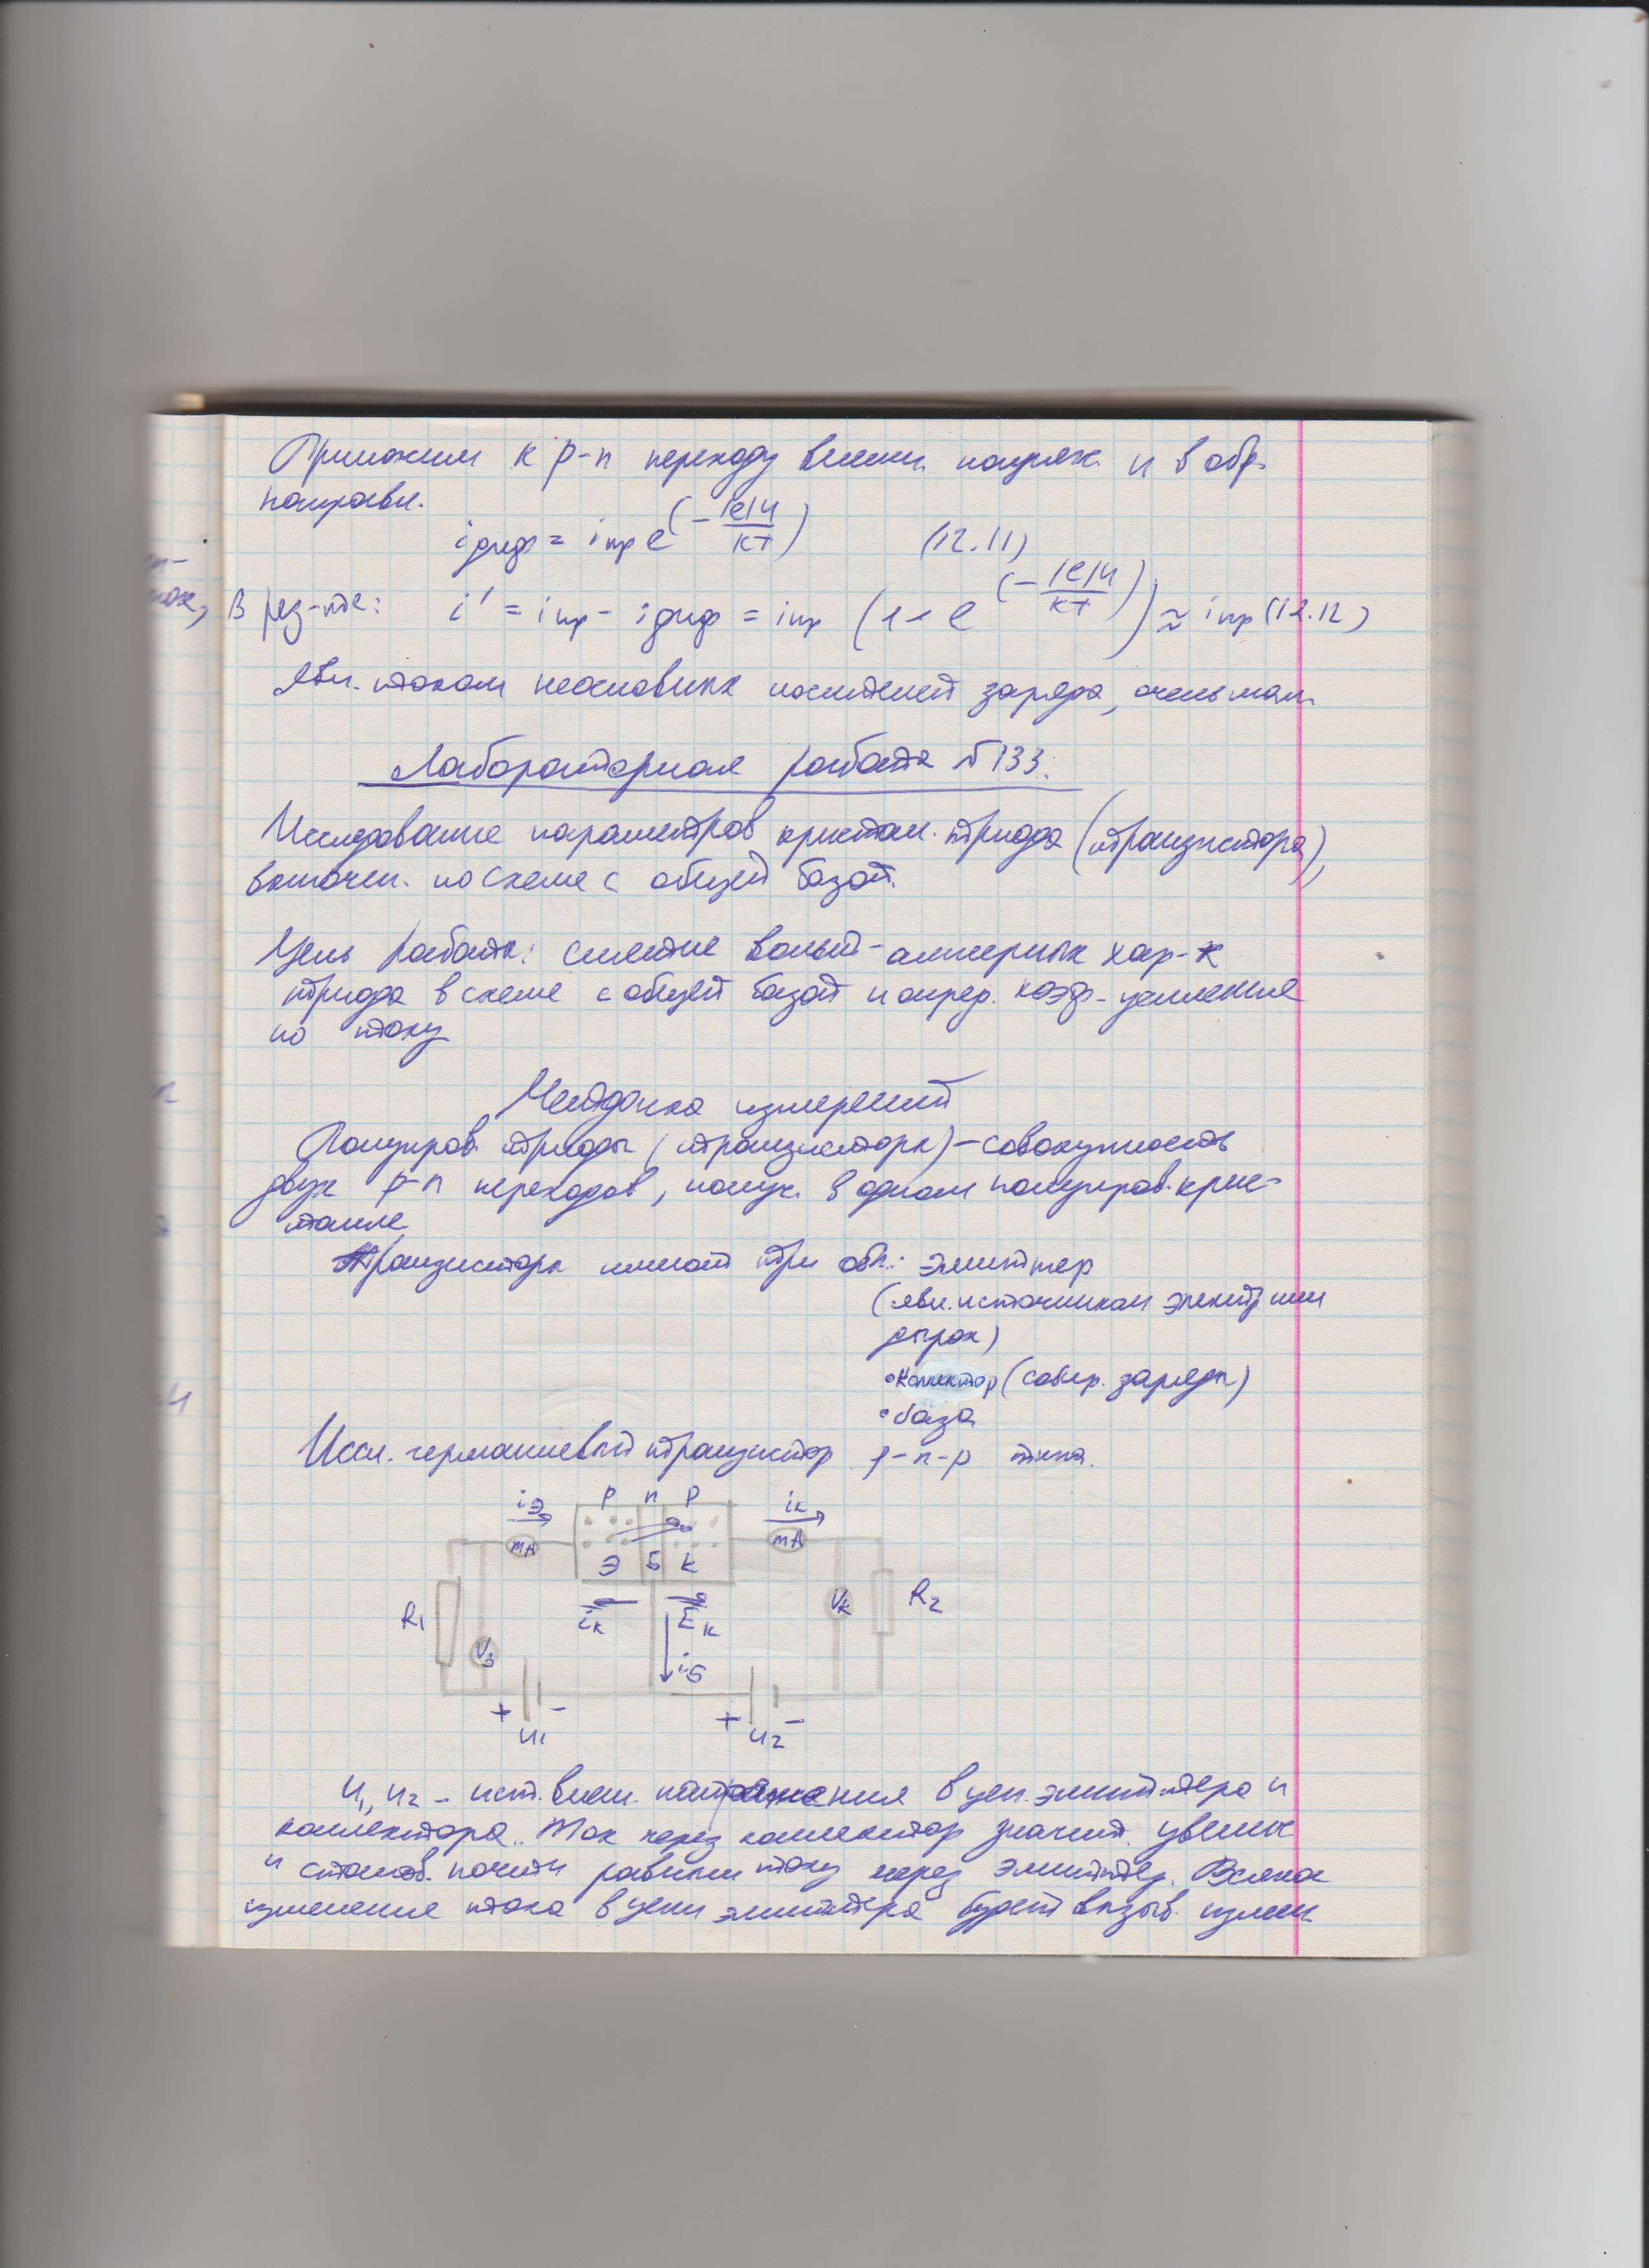 Приложим к p-n переходу внешн. напряж. и в обр.
направл.
i диф = i пр e^(- |e|U / кТ) (12.11)
В рез-те: i' = i пр - i диф = i пр (1 - e^(- |e|U / кТ)) ≈ i пр (12.12)
Явл. током неосновных носителей заряда, очень мал.
Лабораторная работа №133.
Исследование параметров кристал. триода (транзистора),
включен. по схеме с общей базой.
Цель работы: снятие вольт-амперных хар-к
триода в схеме с общей базой и опред. коэф. усиления
по току
Методика измерений
Полупров. триоды (транзисторы) - совокупность
двух p-n переходов, получ. в одном полупров. крис-
талле
Транзисторы имеют три обл.: эмиттер
(явл. источником электр или
дырок)
• Коллектор (собир. заряды)
• база
Иссл. германиевый транзистор p-n-p типа.
iэ P n P iк
mA Э Б К mA
R1 Vэ iк Eк Vк R2
iБ
+ - + -
U1 U2
U1, U2 - ист. внеш. напряжения в цеп. эмиттера и
коллектора. Ток через коллектор значит. увелич
и станов. почти равным току через эмиттер. Всякое
изменение тока в цепи эмиттера будет вызыв. измен